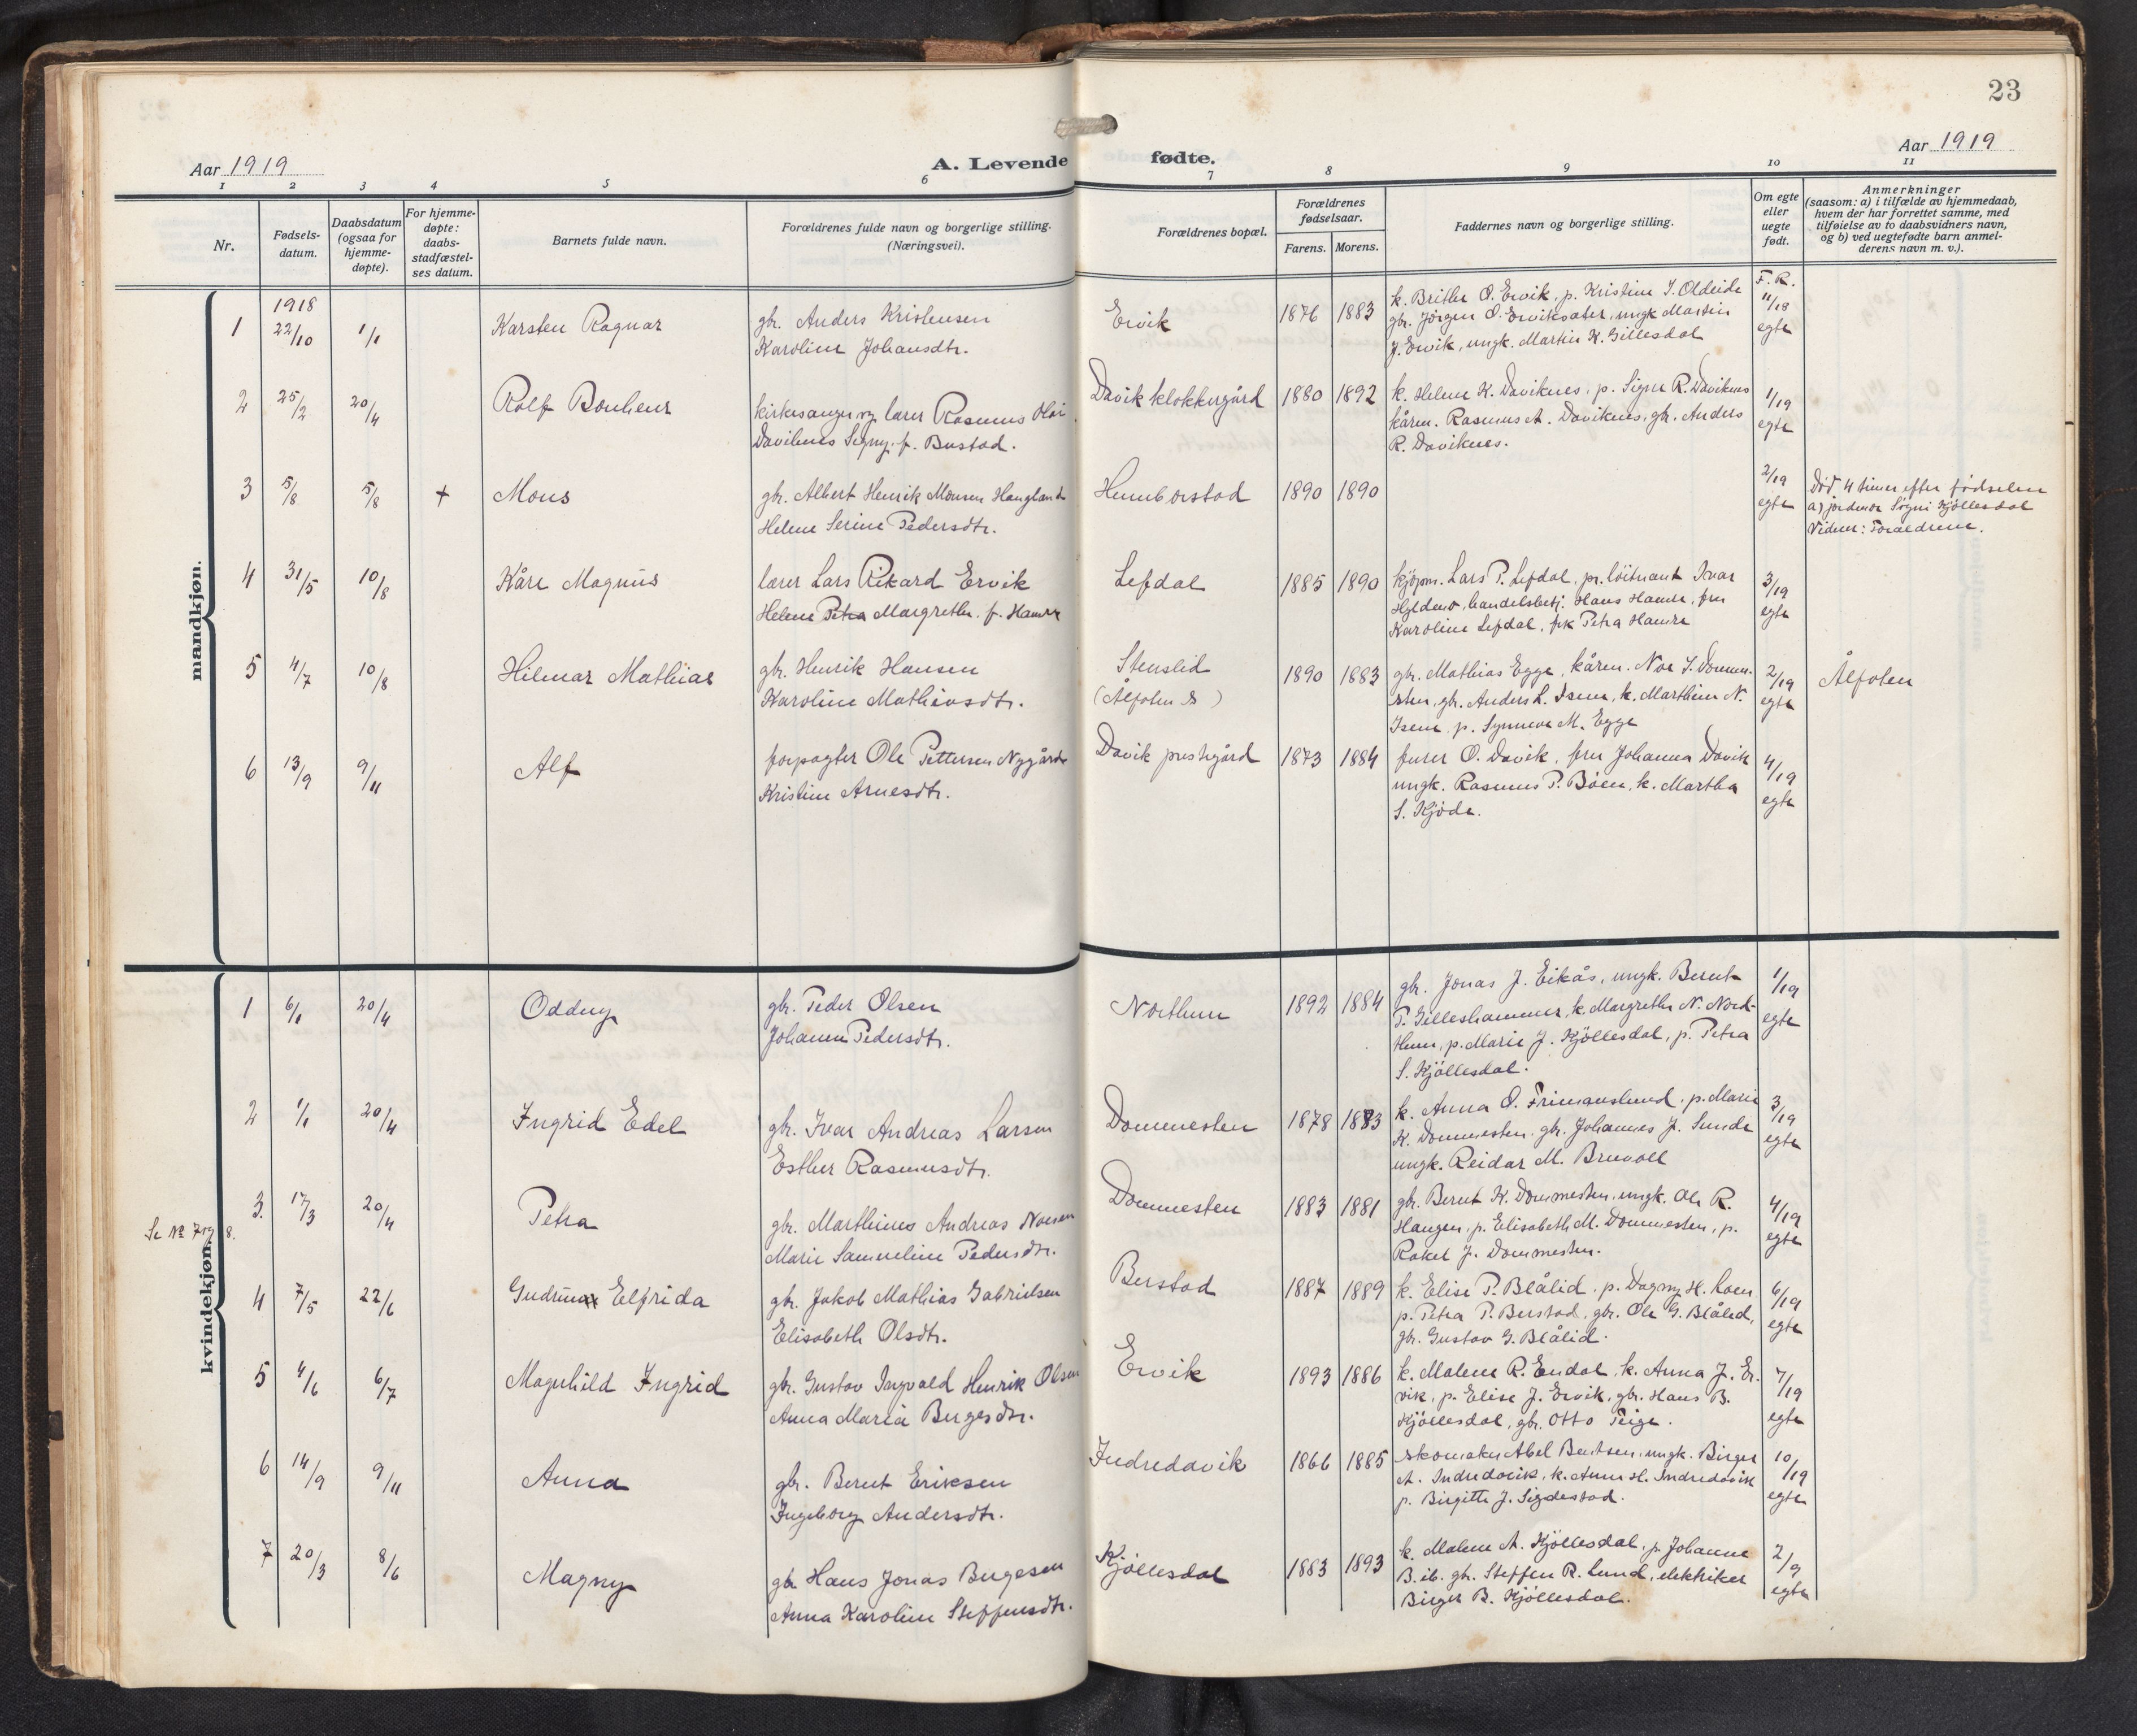 23
Aar 1919
A. Levende fødte.
Aar 1919
1 2 3 4 5 6 7 8 9 10 11
Nr.
Fødsels-
datum.
Daabsdatum
(ogsaa for
hjemme-
døpte).
For hjemme-
døpte:
daabs-
stadfæstel-
ses datum.
Barnets fulde navn.
Forældrenes fulde navn og borgerlige stilling.
(Næringsvei).
Forældrenes bopæl.
Forældrenes
fødselsaar.
Farens. Morens.
Faddernes navn og borgerlige stilling.
Om egte
eller
uegte
født.
Anmerkninger
(saasom: a) i tilfælde av hjemmedaab,
hvem der har forrettet samme, med
tilføielse av to daabsvidners navn,
og b) ved uegtefødte barn anmel-
derens navn m. v.).
mandkjøn.
1
1918
22/10
1/1
Karsten Ragnar
gbr. Anders Kristensen
Karoline Johansdtr.
Ervik
1876 1883
k. Brithe O. Ervik, p. Kristine J. Oldeide
gbr. Jörgen O. Erviksæter, ungk Martin
J. Ervik, ungk. Martin K. Gillesdal
F. R.
11/18
egte
2
25/2
20/4
Rolf
kirkesanger og lærer Rasmus
Daviknes Signy, f. Bustad.
Davik klokkergård
1880 1892
k. Helene K. Daviknes, p. Signe R. Daviknes
kårm. Rasmus A. Daviknes, gbr. Anders
R. Daviknes.
1/19
egte
3
5/8
5/8
+
Mons
gbr. Albert Henrik Monsen Haugland
Helene Serine Pedersdtr.
Humborstad
1890 1890
2/19
egte
Död 4 timer efter födselen
a) jordmor Signi Kjöllesdal
Vidner: Forældrene.
4
31/5
10/8
Kåre Magnus
lærer Lars Rikard Ervik
Helene Petra Margrethe f. Hamre
Lefdal
1885 1890
kjöpm. Lars P. Lefdal, pr. löitnant Ivar
handelsbetj. Hans Hamre, fru
Karoline Lefdal, frk Petra Hamre
3/19
egte
5
4/7
10/8
Hilmar Mathias
gbr. Henrik Hansen
Karoline Mathiasdtr.
Stenslid
(Ålfoten S)
1890 1883
gbr. Mathias Egge, kårm. Noe S. Dommes-
sten, gbr. Anders L. Isene, k. Marthine N.
Isene, p. Synneve M. Egge
2/19
egte
Ålfoten
6
13/9
9/11
Alf
forpagter Ole Pettersen Nygård
Kristine Arnesdtr.
Davik prestegård
1873 1884
furer O. Davik, fru Johanna Davik
ungk. Rasmus P. Böen, k. Martha
S. Kjöde.
4/19
egte
kvindekjøn.
1
6/1
20/4
Oddny
gbr. Peder Olsen
Johanne Pedersdtr.
Northun
1892 1884
gbr. Jonas J. Eikås, ungk. Bernt
P. Gilleshammer, k. Margrethe N. Nord-
thun, p. Marie J. Kjöllesdal, p. Petra
S. Kjöllesdal.
1/19
egte
2
1/1
20/4
Ingrid Edel
gbr. Ivar Andreas Larsen
Esther Rasmusdtr.
Dommesten
1878 1883
k. Anna O. Frimanslund, p. Marie
K. Dommesten, gbr. Johannes J. Sunde
ungk. Reidar M. Bruvoll
3/19
egte
Se No 7 og 8.
3.
17/3
20/4
Petra
gbr. Marthinus Andreas Noesen
Marie Samueline Pedersdtr.
Dommesten
1883 1881
gbr. Bernt K. Dommesten, ungk. Ole R.
Haugen, p. Elisabeth M. Dommesten, p.
Rakel J. Dommesten.
4/19
egte
4
7/5
22/6
Gudrun Elfrida
gbr. Jakob Mathias Gabrielsen
Elisabeth Olsdtr.
Berstad
1887 1889
k. Elise P. Blålid, p. Dagny H. Loen
p. Petra P. Berstad, gbr. Ole G. Blålid,
gbr. Gustav G. Blålid.
6/19
egte
5
4/6
6/7
Magnhild Ingrid
gbr. Gustav Ingvald Henrik Olsen
Anna Maria Birgesdtr.
Ervik
1893 1886
k. Malene R. Endal, k. Anna J. Er-
vik, p. Elise J. Ervik, gbr. Hans B.
Kjöllesdal, gbr. Otto Teige.
7/19
egte
6
14/9
9/11
Anna
gbr. Bernt Eriksen
Ingeborg Andersdtr.
Indredavik
1866 1885
skomaker Abel Berntsen, ungk. Birger
A. Indredavik, k. Anne H. Indredavik
p. Birgitte J. Sigdestad.
10/19
egte
7
20/3
8/6
Magny
gbr Hans Jonas Birgesen
Anna Karoline Steffensdtr.
Kjöllesdal
1883 1893
k. Malene A. Kjöllesdal, p. Johanne
B. ib. gbr. Steffen R. Lund, elektriker
Birger B. Kjöllesdal.
2/9
egte